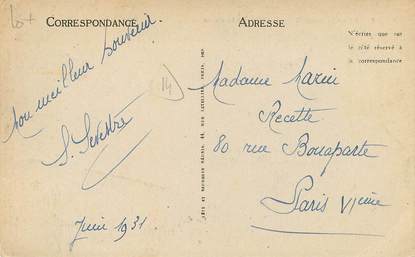 lot
CORRESPONDANCE
ADRESSE
N'écrire que sur
le côté réservé à
la correspondance
Mon meilleur souvenir.
14
S. Sevestre
Juin 1931
Madame Marin
Recette
80 rue Bonaparte
Paris VIème